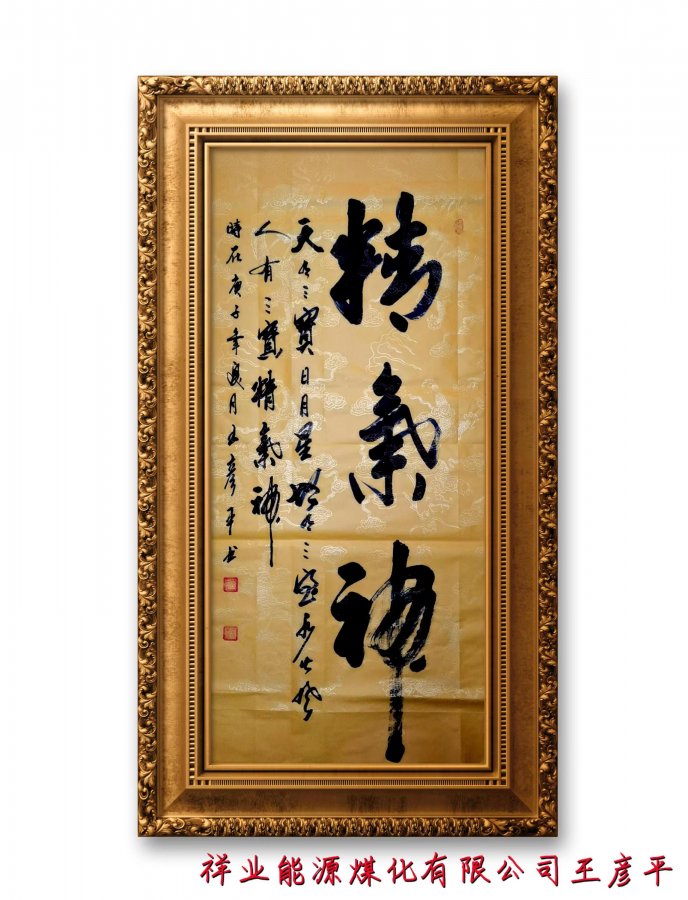 精氣神
天有三寶日月星地有三寶水火風
人有三寶精氣神
時在庚子年夏月王彦平书
祥业能源煤化有限公司王彦平